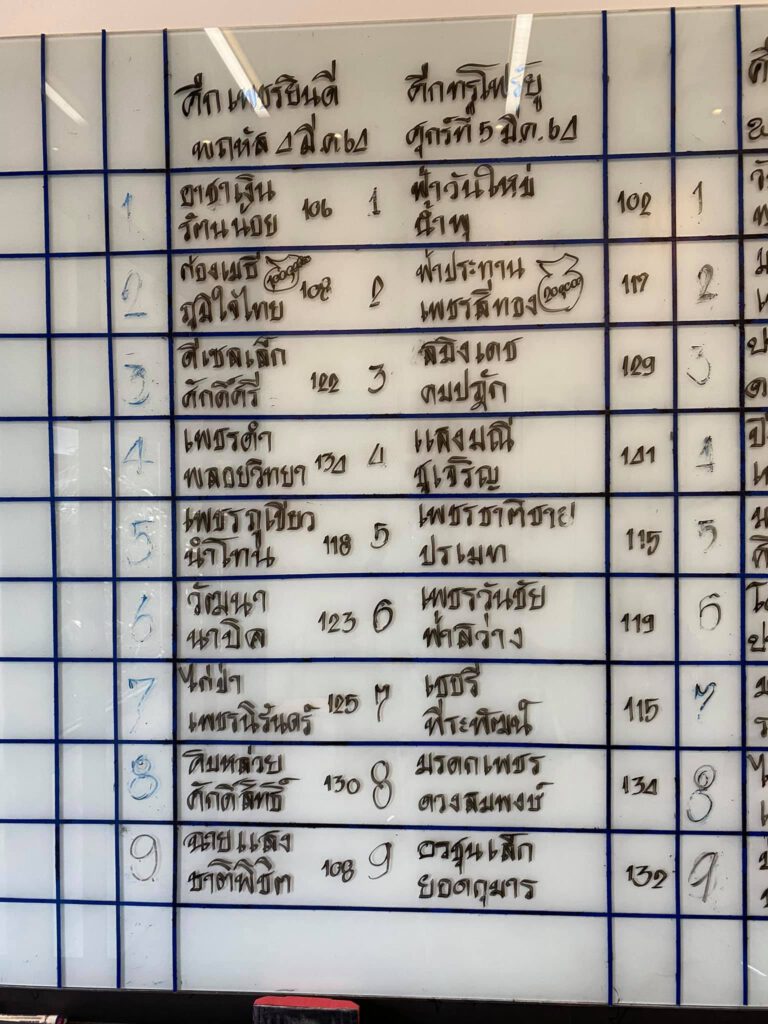 ศึกเพชรยินดี
พฤหัส 4 มี.ค 64
1 อาชาเงิน
รัตนน้อย 106
2 ก้องเมธี 100,000
ภูมิใจไทย 102
3 ดีเซลเล็ก
ศักดิ์ศรี 122
4 เพชรดำ
พลอยวิทยา 134
5 เพชรภูเขียว
นำโทน 118
6 วัฒนา
นาบิล 123
7 ไก่ป่า
เพชรนิรันดร์ 125
8 คิมหล่วย
ศักดิ์สิทธิ์ 130
9 ฉายแสง
ชาติพิชิต 108
ศึกทรูโฟร์ยู
ศุกร์ที่ 5 มี.ค. 64
1 ฟ้าวันใหม่
น้ำพุ 102
2 ฟ้าประทาน
เพชรสีทอง 200,000 117
3 สิงเดช
คมปฏัก 129
4 แสงมณี
ชูเจริญ 141
5 เพชรชาติชาย
ปรเมท 115
6 เพชรวันชัย
ฟ้าสว่าง 119
7 เชอรี่
พีระพัฒน์ 115
8 มรดกเพชร
ดวงสมพงษ์ 134
9 อรชุนเล็ก
ยอดกุมาร 132
1
2
3
4
5
6
7
8
9